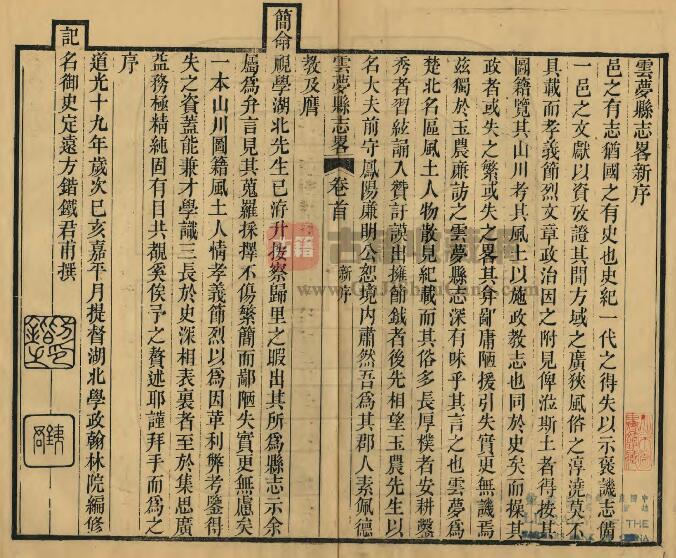 雲夢縣志畧新序
邑之有志猶國之有史也史紀一代之得失以示褒譏志備
一邑之文獻以資攷證其間方域之廣狹風俗之淳澆莫不
具載而孝義節烈文章政治因之附見俾涖斯土者得按其
圖籍覽其山川考其風土以施政教志也同於史矣而操其
政者或失之繁或失之畧其弇鄙庸陋援引失實更無譏焉
茲獨於玉農廉訪之雲夢縣志深有味乎其言之也雲夢爲
楚北名區風土人物散見紀載而其俗多長厚樸者安耕鑿
秀者習絃誦入贊訏謨出擁節鉞者後先相望玉農先生以
名大夫前守鳳陽廉明公恕境內肅然吾爲其郡人素佩德
雲夢縣志畧
卷首
新序
教及膺
簡命視學湖北先生已洊升按察歸里之暇出其所爲縣志示余
屬爲弁言見其蒐羅採擇不傷繁簡而鄙陋失實更無慮矣
一本山川圖籍風土人情孝義節烈以爲因革利弊考鑒得
失之資蓋能兼才學識三長於史深相表裏者至於集思廣
益務極精純固有目共覩奚俟予之贅述耶謹拜手而爲之
序
道光十九年歲次己亥嘉平月提督湖北學政翰林院編修
記名御史定遠方鍇鐵君甫撰